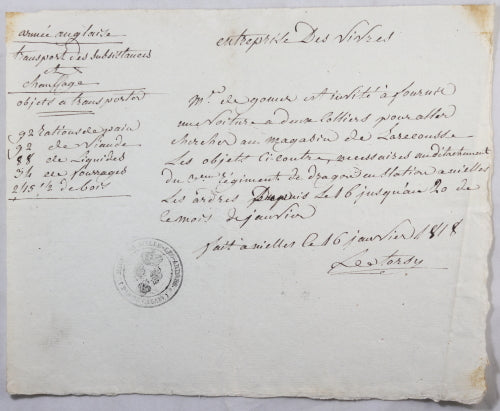 armée anglaise
transport des subsistances
et
chauffage
objets a transporter
92 rations de pain
92 de viande
88 de liquides
34 de fourrages
de bois
entreprise Des vivres
Mr. de gomer est invité a fournir
une voiture a deux Colliers pour aller
chercher au magasin de Larecousse
Les objets Ci contre, necessaires au détachement
du regiment de dragon en station a nielles
Les ardres Depuis le 16 jusqu'au 20 de
ce mois de janvier
fait a nielles le 16 janvier 1818